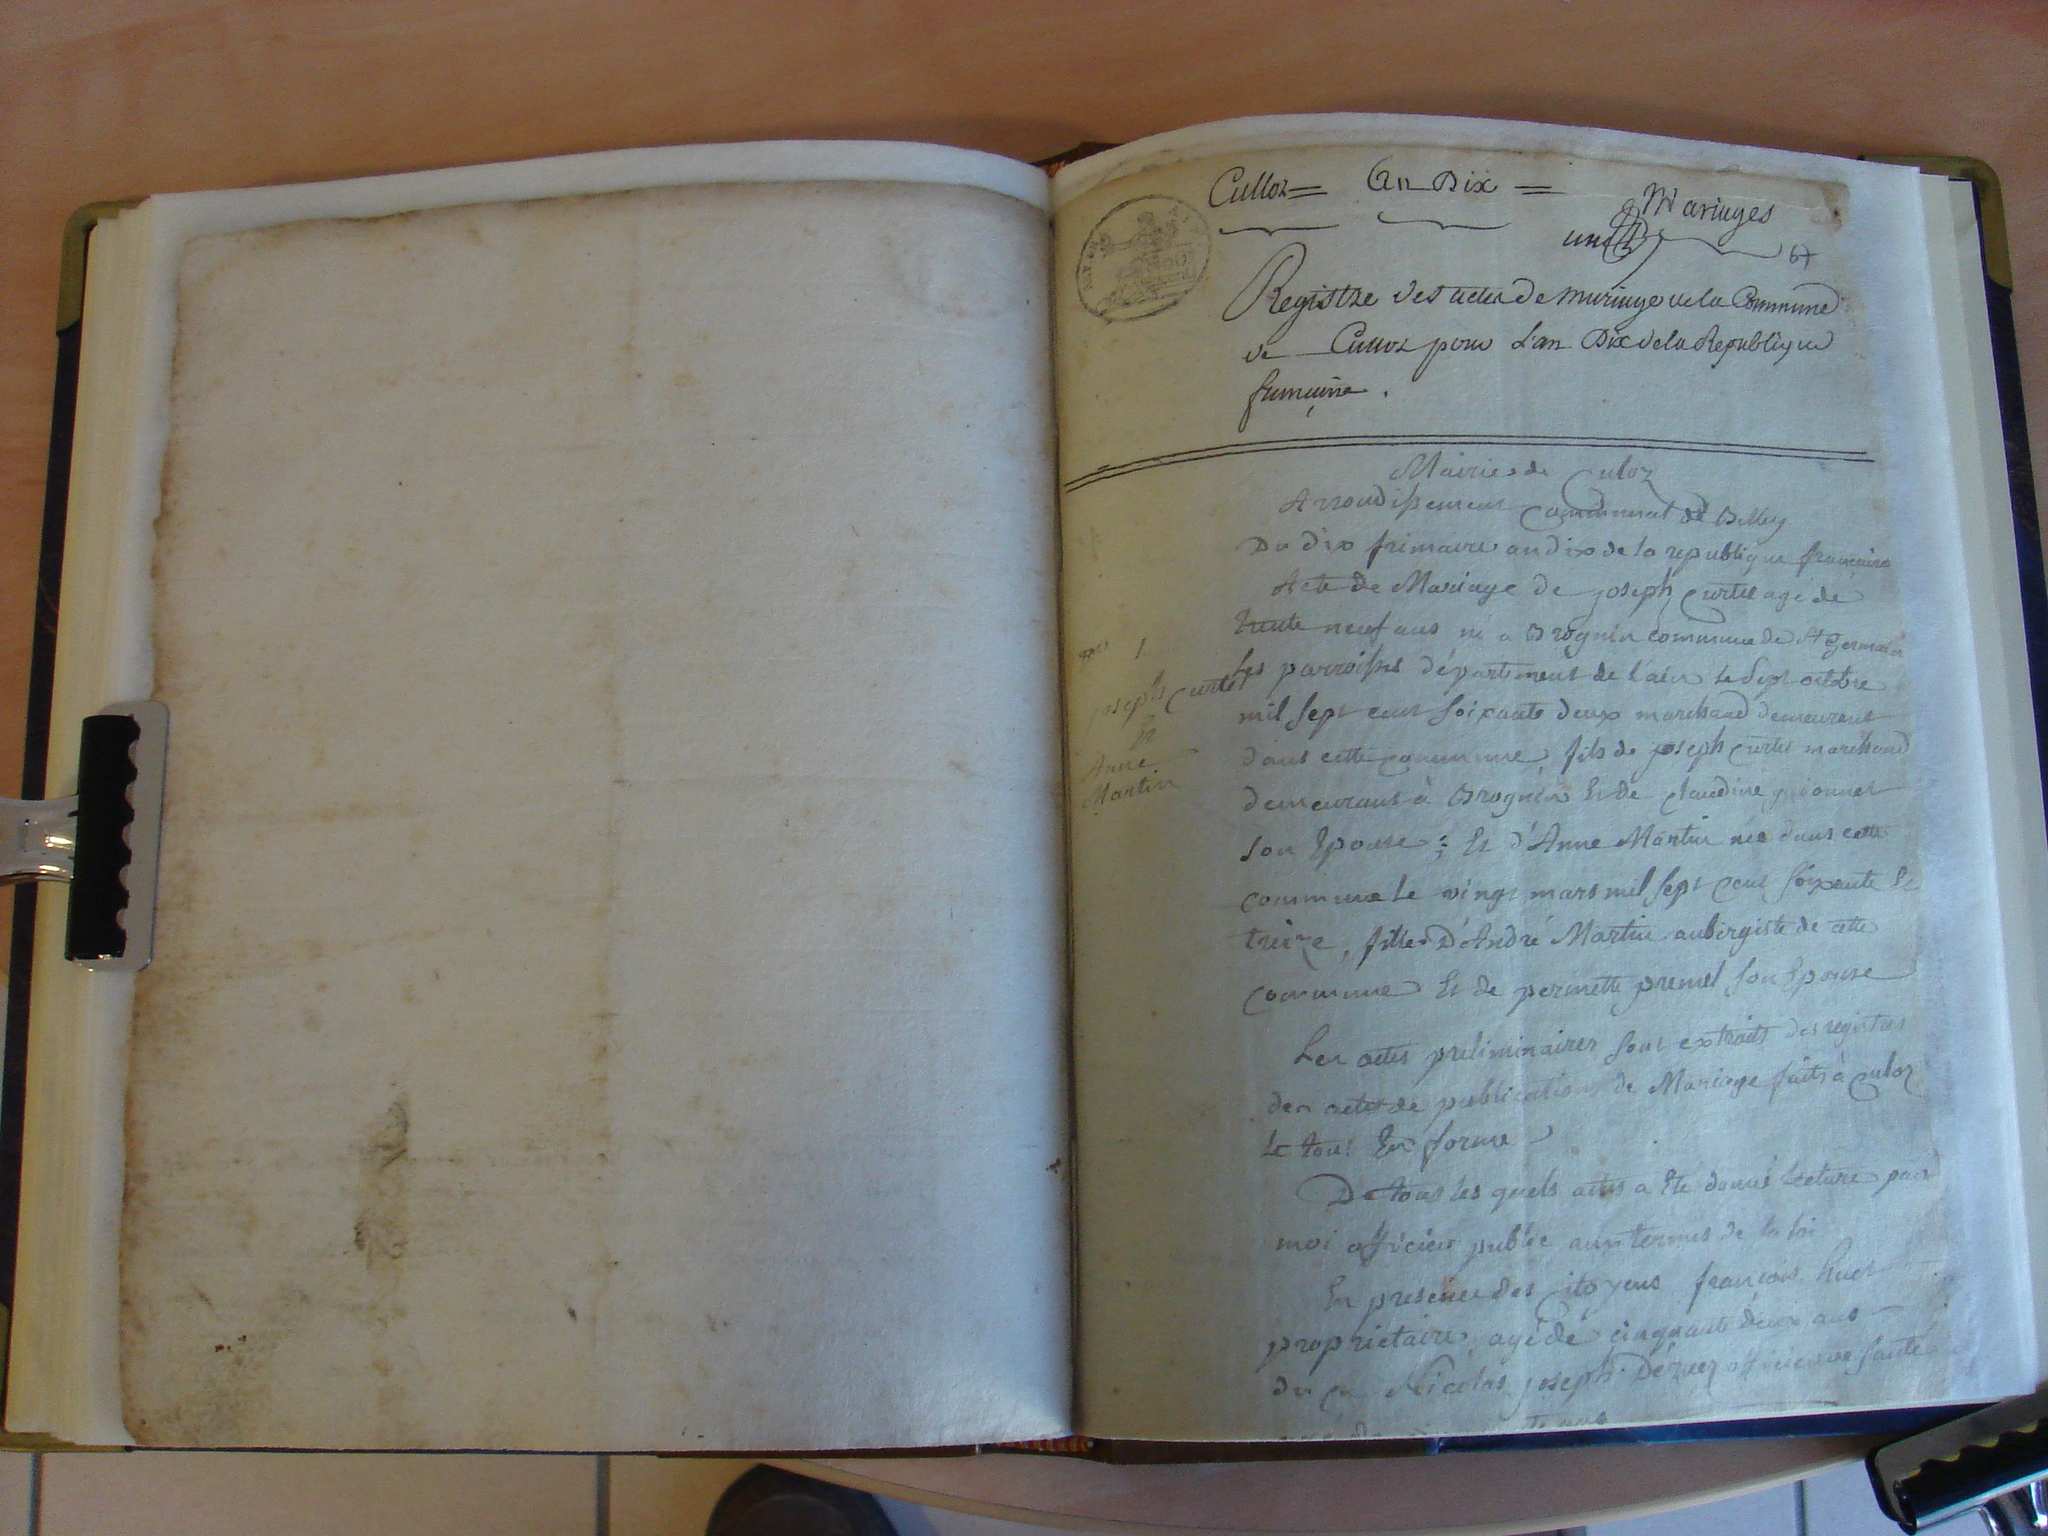 Culloz = an Dix =
Mariages
un
67
Registre des actes de mariage de la Commune
de Culloz pour L'an Dix de la Republique
francaise.
Mairie de Culoz
Arrondissement Communal de Belley
Du dix frimaire an dix de la republique francaise
Acte de Mariage de joseph Curtet agé de
trente neuf ans né a Brognin commune de St germain
Les parroisses département de l'ain le Sept octobre
mil sept cent soixante deux marchand demeurant
dans cette commune, fils de joseph curtet marchand
demeurant à Brognin Et de claudine
son Epouse; Et d'Anne Martin née dans cette
commune le vingt mars mil sept cent soixante Et
treize, fille D'André Martin aubergiste de cette
commune Et de pernette premel son Epouse
Les actes preliminaires sont extraits des registres
des actes de publication de Mariage faits à Culoz
Le tout En forme
De tous les quels actes a Eté donné lecture par
moi officier public aux termes de la loi
En presence des citoyens francois huet
propriétaire, agé de cinquante deux ans
du cn Nicolas joseph officier de santé
no 1.
joseph Curtet
Et
Anne
Martin